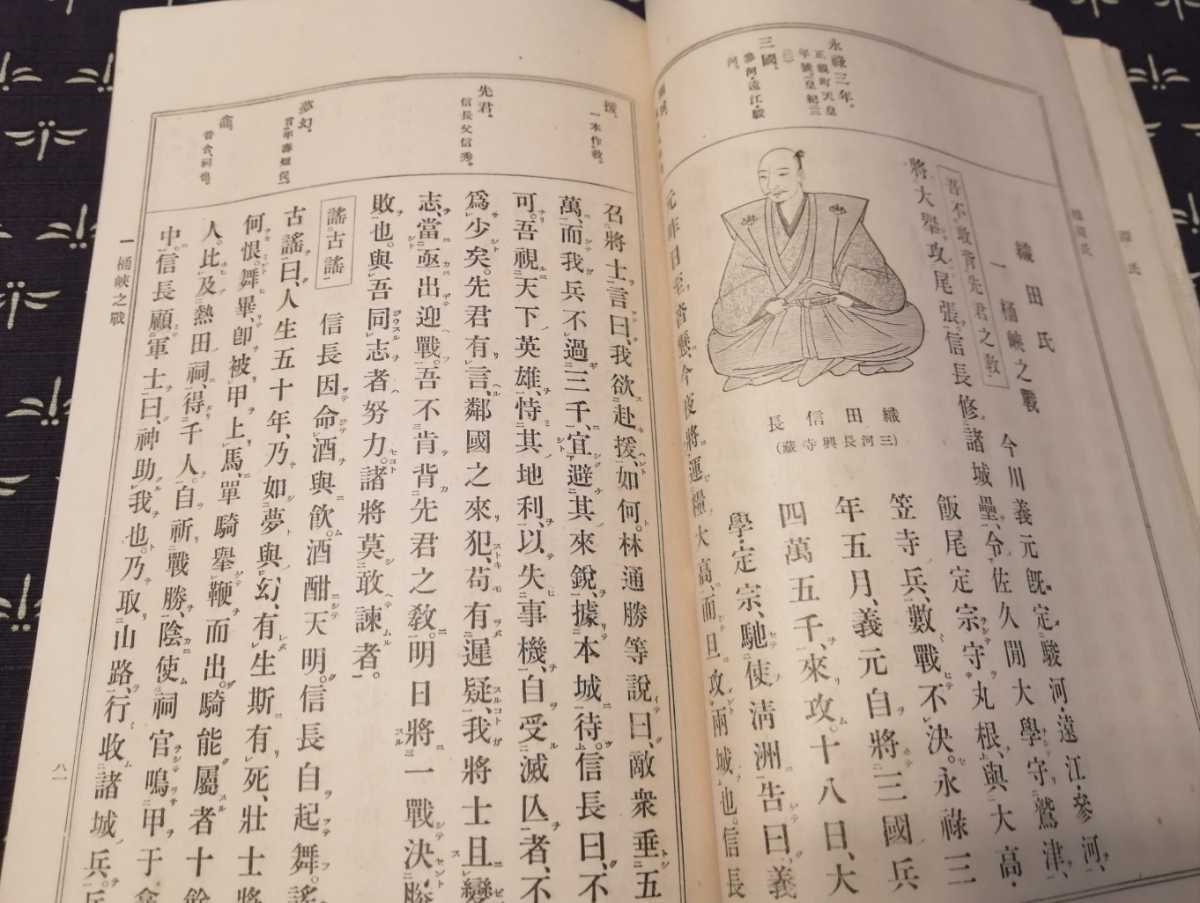 源氏
織田氏
永祿三年。
正親町天皇
年號。皇紀二三
三國。
參河・遠江・駿
河。
織田氏
一 桶峽之戰
吾不敢背先君之敎
今川義元旣定駿河・遠江・參河、
將大擧攻尾張。信長修諸城壘、令佐久閒大學守鷲津、
飯尾定宗守丸根、與大高・
笠寺兵、數戰不決。永祿三
年五月、義元自將三國兵
四萬五千、來攻。十八日、大
學・定宗、馳使淸洲告曰、義
元昨日至沓懸、今夜將運糧大高、而旦攻兩城也。信長
織田信長
(三河長興寺藏)
援。
一本作救。
先君。
信長父信秀。
夢幻。
龕。
音含、祠也。
召將士言曰、我欲赴援、如何。林通勝等說曰、敵衆垂五
萬、而我兵不過三千、宜避其來銳、據本城待。信長曰、不
可。吾視天下英雄、恃其地利、以失事機、自受滅亾者、不
爲少矣。先君有言、鄰國之來犯、苟有遲疑、我將士且變
志、當亟出迎戰。吾不肯背先君之敎。明日將一戰決勝
敗也。與吾同志者努力。諸將莫敢諫者。
謠古謠
信長因命酒與飮。酒酣天明。信長自起舞。謠
古謠曰、人生五十年、乃如夢與幻、有生斯有死、壯士將
何恨。舞畢卽被甲上馬、單騎擧鞭而出。騎能屬者十餘
人。比及熱田祠、得千人。自祈戰勝、陰使祠官鳴甲于龕
中。信長顧軍士曰、神助我也。乃取山路、行收諸城兵。兵
一 桶峽之戰
八一